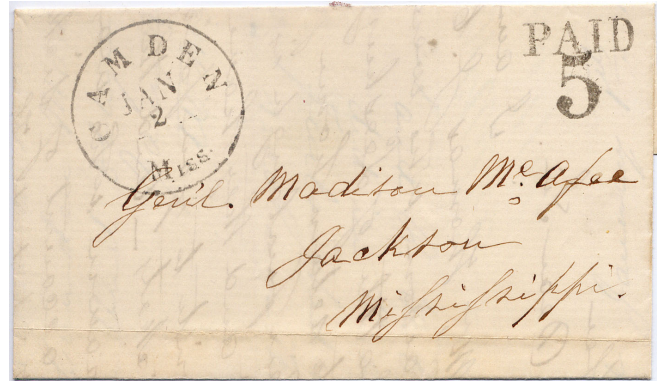 CAMDEN
JAN
2
Miss.
PAID
5
Genl. Madison Mc. Afee
Jackson
Mississippi.